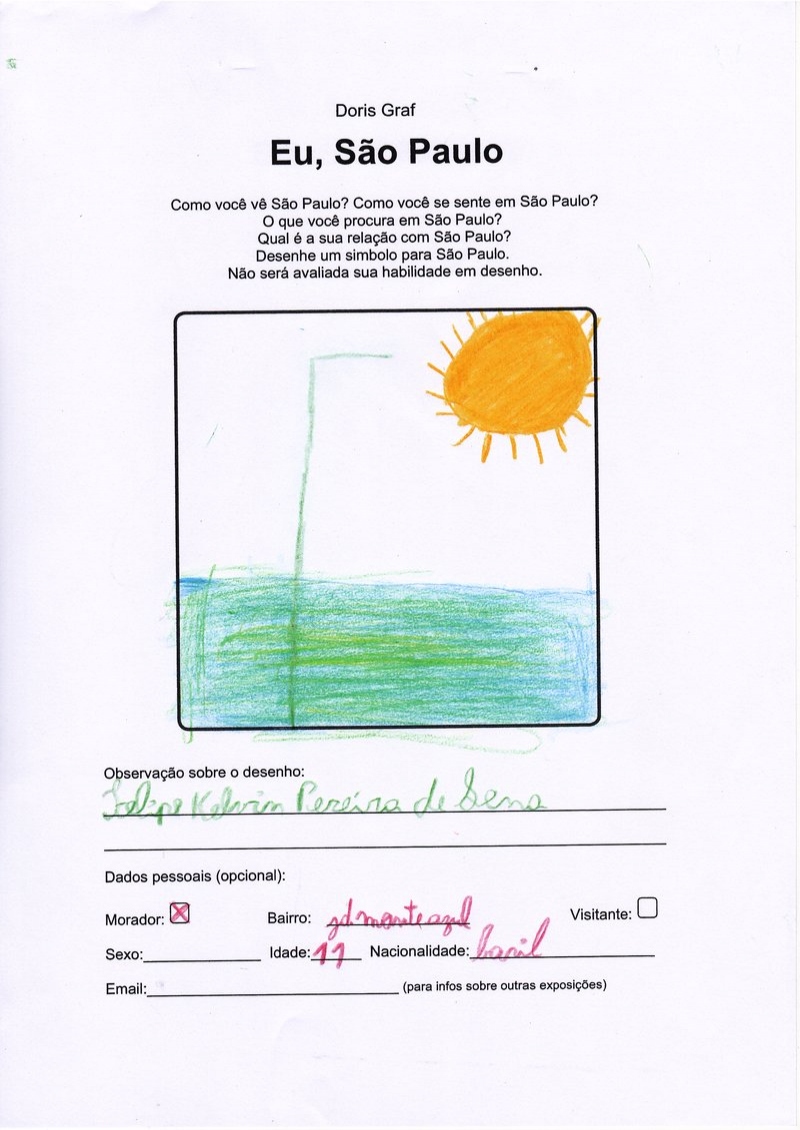 Doris Graf
Eu, São Paulo
Como você vê São Paulo? Como você se sente em São Paulo?
O que você procura em São Paulo?
Qual é a sua relação com São Paulo?
Desenhe um simbolo para São Paulo.
Não será avaliada sua habilidade em desenho.
Observação sobre o desenho:
Felipe Kelvin Pereira de Sena
Dados pessoais (opcional):
Morador: X Bairro: jd. monte azul Visitante:
Sexo: Idade: 11 Nacionalidade: baril
Email: (para infos sobre outras exposições)